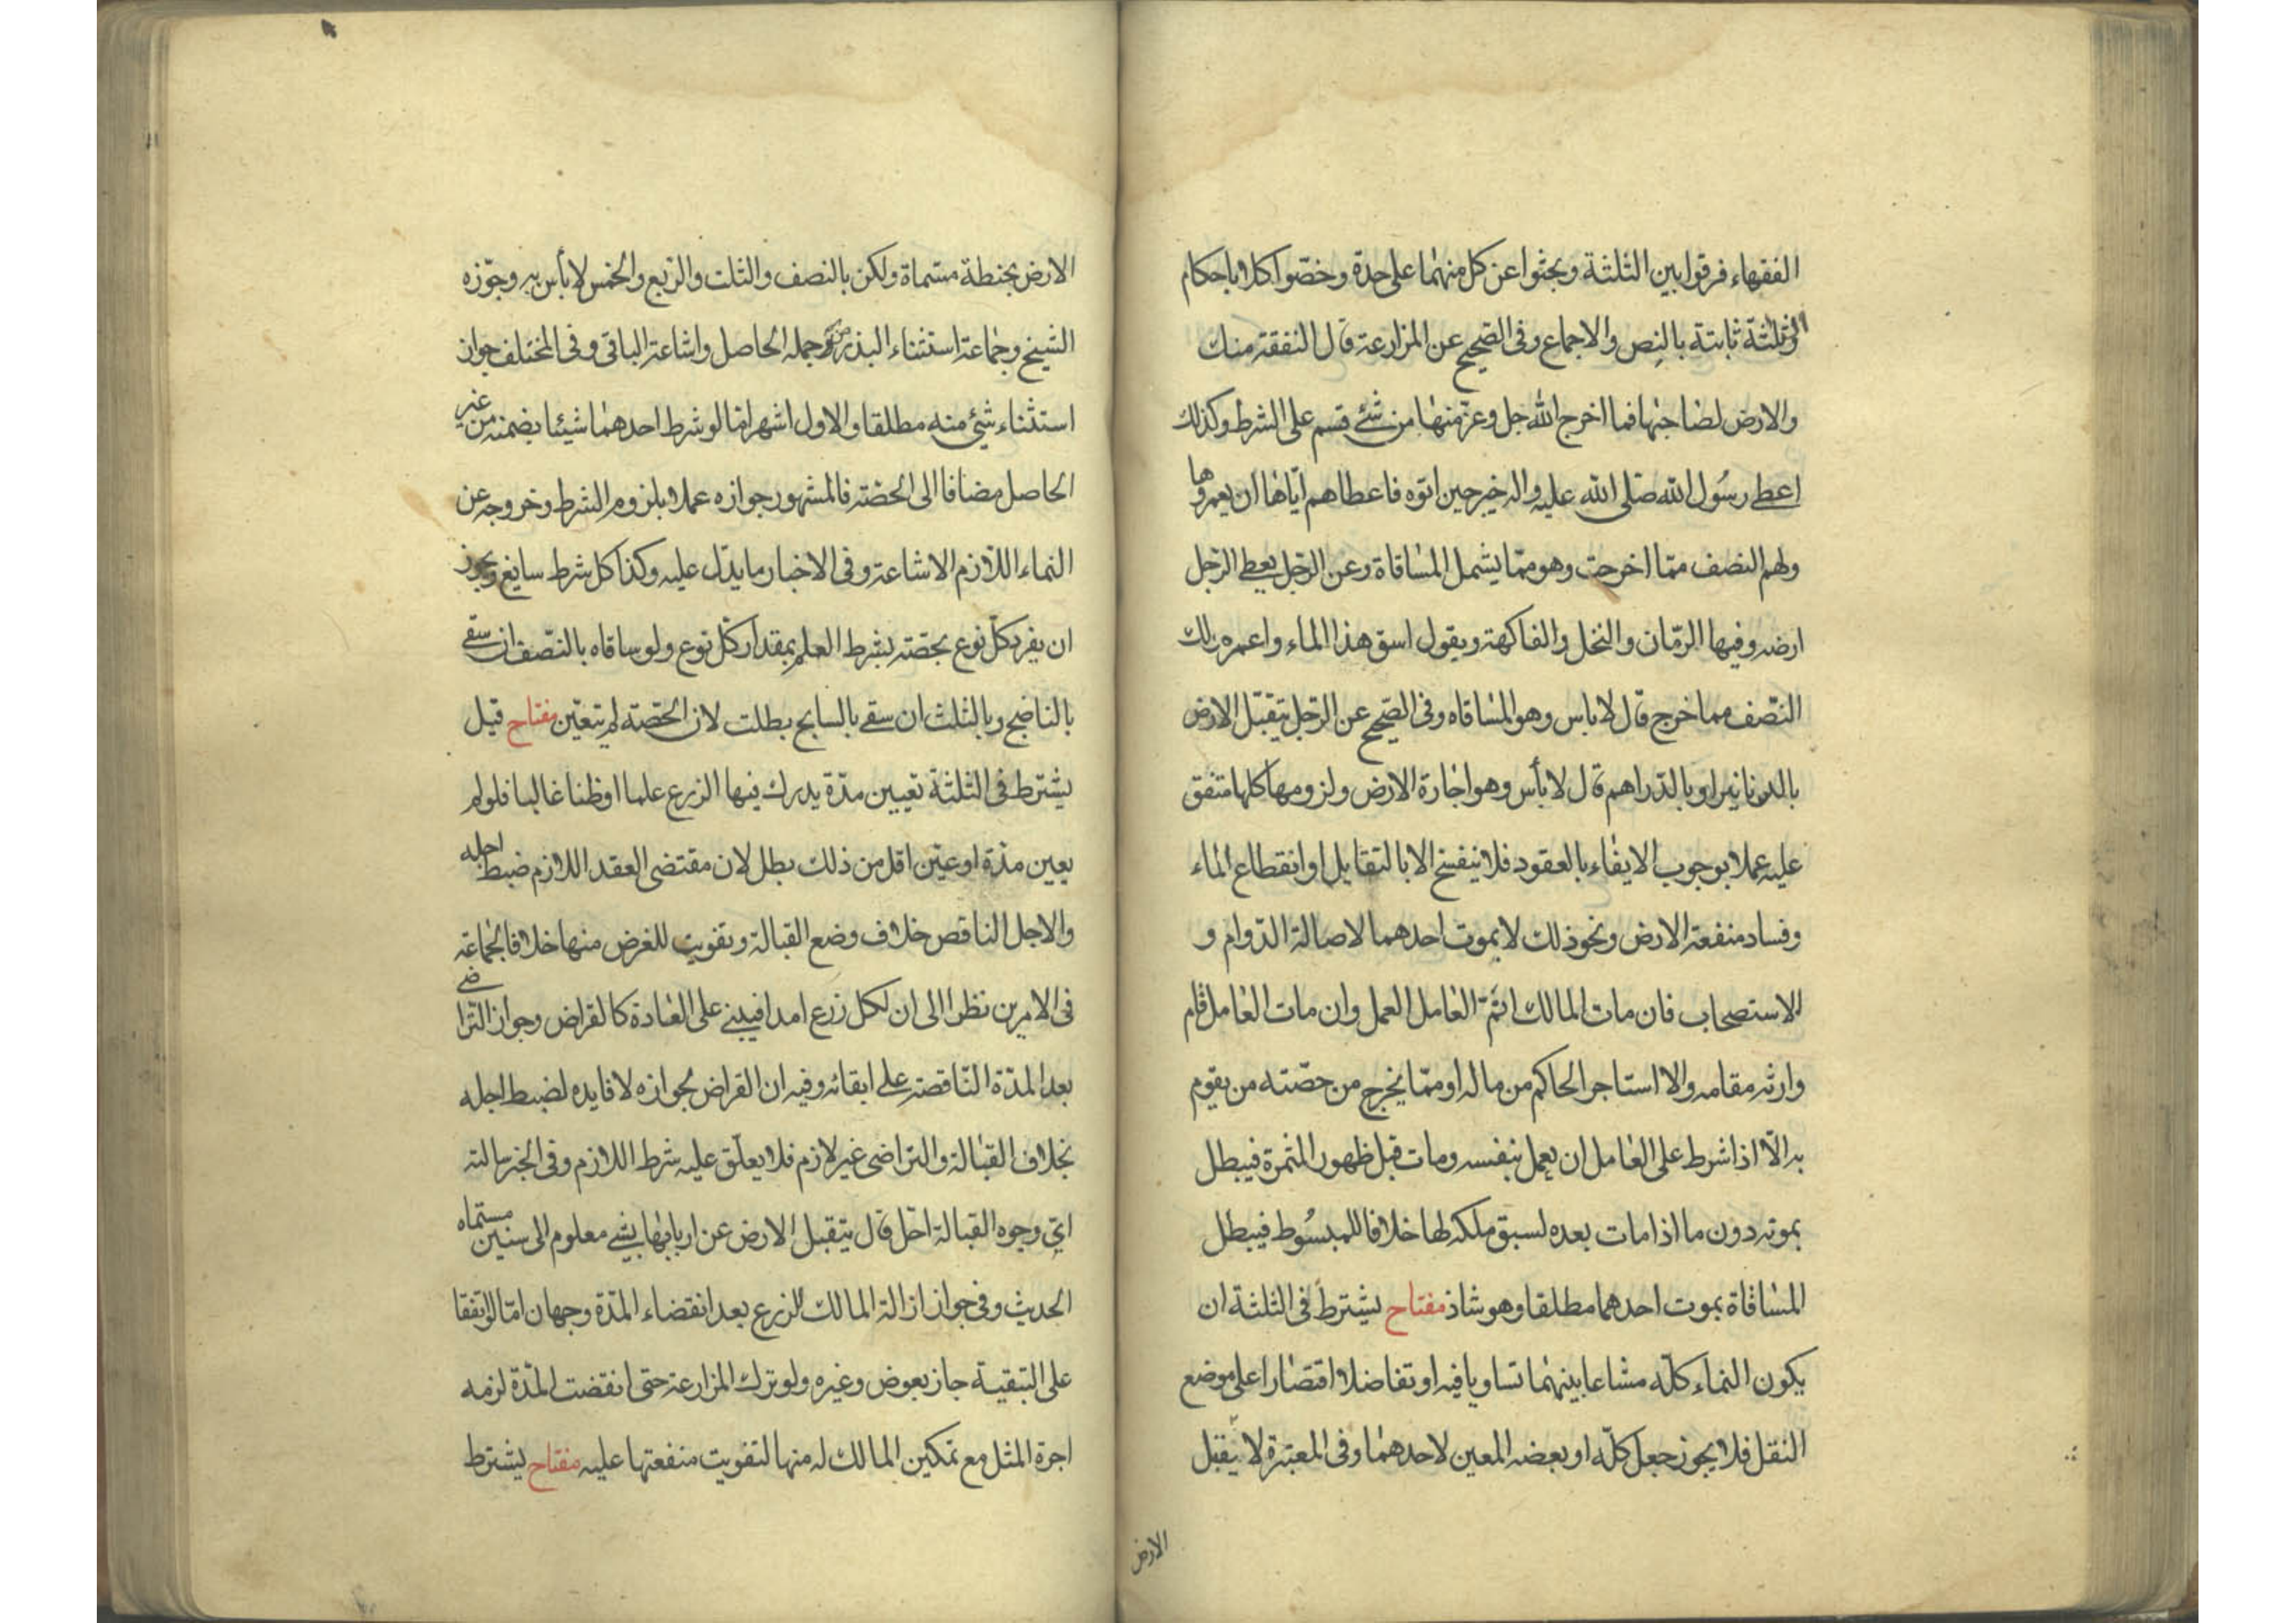 الفقهاء فرقوا بين الثلثة وبحثوا عن كل منهما على حدة وخصّوا كلا باحكام
والثلثة ثابتة بالنص والاجماع وفى الصّحيح عن المزارعة قال النفقة منك
والارض لصاحبها فما اخرج الله جل وعز منها من شئ قسم على الشرط وكذلك
اعطى رسُول الله صلى الله عليه واله خيبر حين اتوه فاعطاهم ايّاها ان يعمروها
ولهم النصف ممّا اخرجت وهو ممّا يشمل المساقاة وعن الرّجل يعطى الرّجل
ارضه وفيها الرّمّان والنخل والفاكهة ويقول اسق هذا الماء واعمره ولك
النّصف مما خرج قال لا باس وهو المساقاه وفى الصّحيح عن الرّجل يتقبّل الارض
بالدنانير او بالدّراهم قال لا بأس وهو اجارة الارض ولزومها كلها متفق
عليه عملا بوجوب الايفاء بالعقود فلا ينفسخ الا بالتقايل او انقطاع الماء
وفساد منفعة الارض ونحو ذلك لا بموت احدهما لاصالة الدّوام و
الاستصحاب فان مات المالك اتمّ العامل العمل وان مات العامل قام
وارثه مقامه والا استاجر الحاكم من ماله او ممّا يخرج من حصّته من يقوم
به الّا اذا شرط على العامل ان يعمل بنفسه ومات قبل ظهور الثمرة فيبطل
بموته دون ما اذا مات بعده لسبق ملكه لها خلافا للمبسُوط فيبطل
المساقاة بموت احدهما مطلقا وهو شاذ مفتاح يشترط فى الثلثة ان
يكون النماء كلّه مشاعا بينهما تساويا فيه او تفاضلا اقتصارا على موضع
النقل فلا يجوز جعل كلّه او بعضه المعين لاحدهما وفى المعتبرة لا يقبل
الارض
الارض بحنطة مسّماة ولكن بالنصف والثلث والرّبع والخمس لا بأس به وجوّزه
الشيخ وجماعة استثناء البذر من جمله الحاصل واشاعة الباقى وفى المختلف جواز
استثناء شئ منه مطلقا والاول اشهر امّا لو شرط احدهما شيئا يضمنه من غير
الحاصل مضافا الى الحصّة فالمشهور جوازه عملا بلزوم الشرط وخروجه عن
النماء اللازم الاشاعة وفى الاخبار ما يدّل عليه وكذا كل شرط سايغ ويجوز
ان يفرد كلّ نوع بحصّته بشرط العلم بمقدار كلّ نوع ولو ساقاه بالنّصف ان سقى
بالناضح وبالثلث ان سقى بالسايح بطلت لان الحصّة لم تتعيّن مفتاح قيل
يشترط فى الثلثة تعيين مدّة يدرك فيها الزرع علما او ظنا غالبا فلو لم
يعين مدّة او عيّن اقل من ذلك بطل لان مقتضى العقد اللازم ضبط اجله
والاجل الناقص خلاف وضع القبالة وتفويت للغرض منها خلافا لجماعة
فى الامرين نظرا الى ان لكل زرع امدا فيبنى على العادة كالقراض وجواز التّراضى
بعد المدّة النّاقصة على ابقائه وفيه ان القراض لجوازه لا فايده لضبط اجله
بخلاف القبالة والتراضى غير لازم فلا يعلّق عليه شرط اللازم وفى الخبر سالته
اىّ وجوه القبالة احّل قال يتقبل الارض عن اربابها بشى معلوم الى سنين مسّماه
الحديث وفى جواز ازالة المالك الزرع بعد انقضاء المدّة وجهان امّا لو اتفقا
على التبقية جاز بعوض وغيره ولو ترك المزارعة حتى انقضت المدّة لزمه
اجرة المثل مع تمكين المالك له منها لتفويت منفعتها عليه مفتاح يشترط